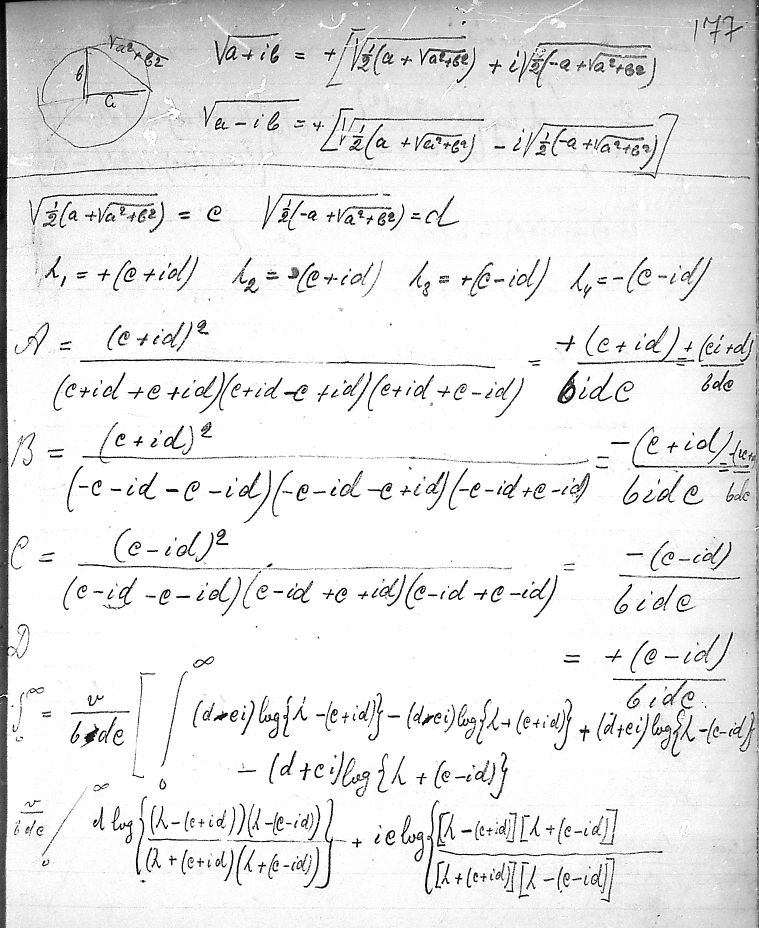 177
√a²+b²
b
a
√a+ib = +[√½(a+√a²+b²) + i√½(-a+√a²+b²)
√a-ib = +[√½(a+√a²+b²) - i√½(-a+√a²+b²)]
√½(a+√a²+b²) = c √½(-a+√a²+b²) = d
h₁ = +(c+id) h₂ = -(c+id) h₃ = +(c-id) h₄ = -(c-id)
A = (c+id)² / (c+id+c+id)(c+id-c+id)(c+id+c-id) = +(c+id) / 6idc = +(ci+d) / 6dc
B = (c+id)² / (-c-id-c-id)(-c-id-c+id)(-c-id+c-id) = -(c+id) / 6idc = / 6dc
C = (c-id)² / (c-id-c-id)(c-id+c+id)(c-id+c-id) = -(c-id) / 6idc
D = +(c-id) / 6idc
∫₀^∞ = v / 6dc [ ∫₀^∞ (d-ci)log{h-(c+id)} - (d-ci)log{h+(c+id)} + (d+ci)log{h-(c-id)}
- (d+ci)log{h+(c-id)}
v / 6dc ∫₀^∞ d log{(h-(c+id))(h-(c-id)) / (h+(c+id)(h+(c-id))} + ic log{[h-(c+id)][h+(c-id)] / [h+(c+id)][h-(c-id)]